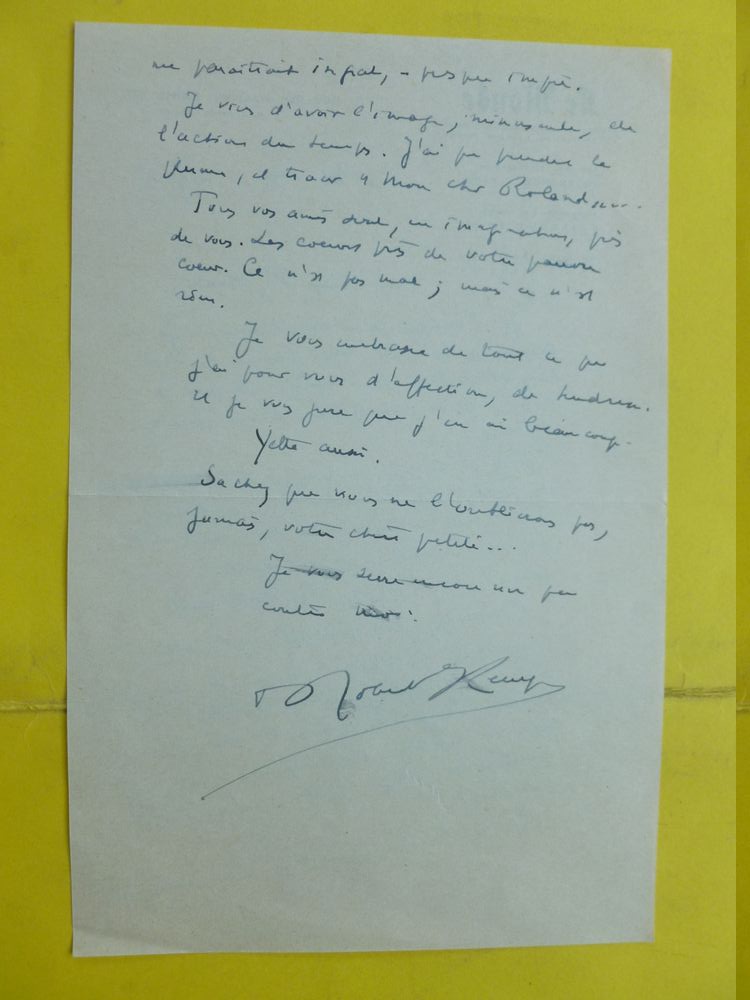 me paraîtrait ingrat, - presque impie.
Je viens d'avoir l'image, minuscule, de
l'action du temps. J'ai pu prendre la
plume, et tracer "Mon cher Roland
Tous vos amis sont, en imagination, près
de vous. Les coeurs près de votre pauvre
coeur. Ce n'est pas mal ; mais ce n'est
rien.
Je vous embrasse de tout ce que
j'ai pour vous d'affection, de tendresse.
et je vous jure que j'en ai beaucoup.
Yette aussi.
Sachez que nous ne l'oublierons pas,
jamais, votre chère petite...
Je vous serre encore un peu
contre moi.
Robert Kemp